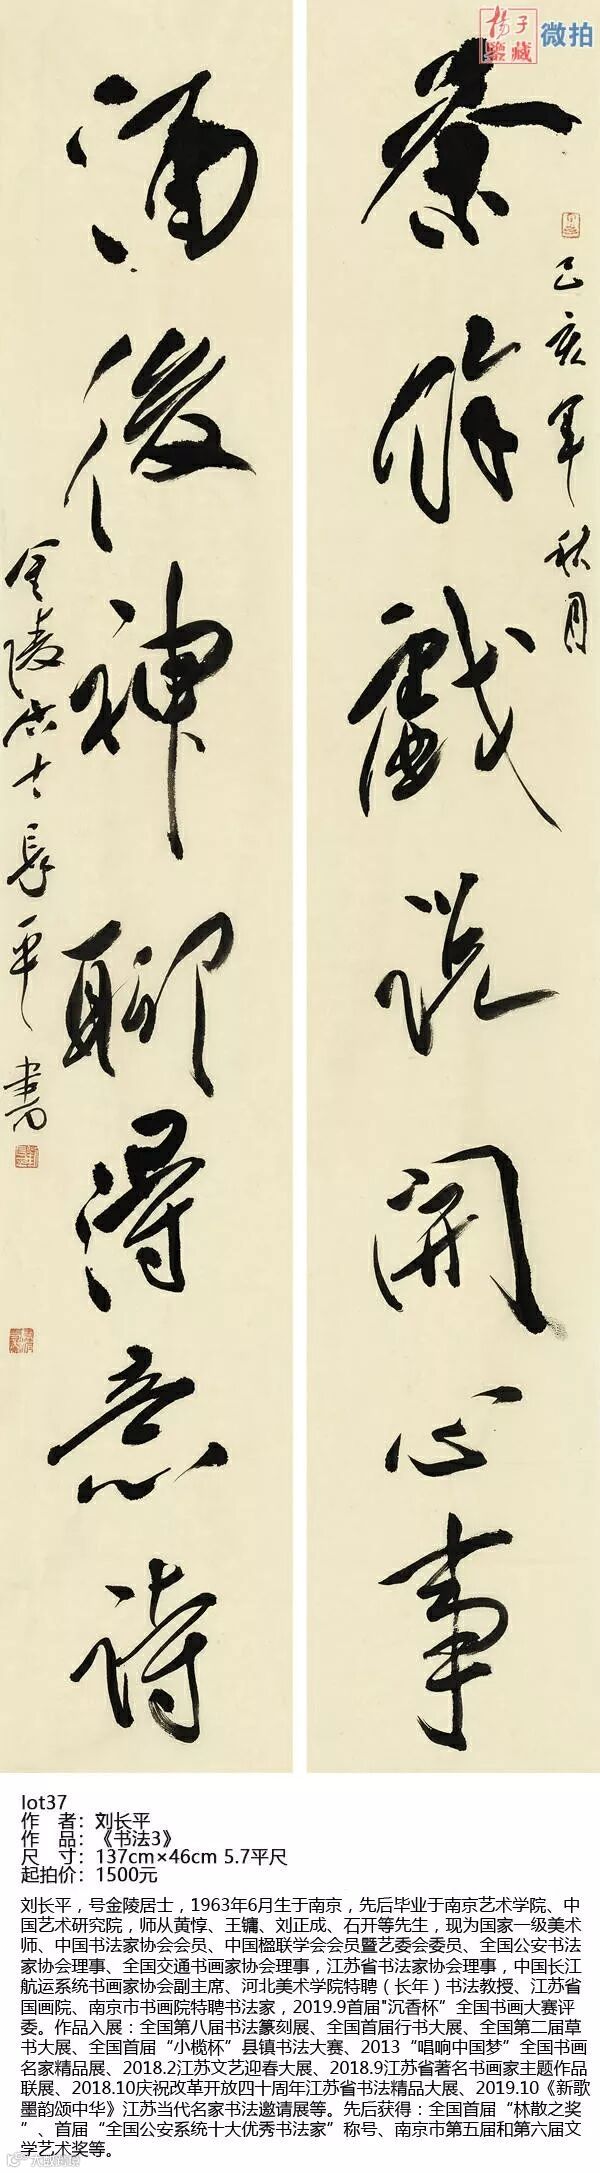 揚子
鑒藏
微拍
茶餘戲說開心事
己亥年秋月
酒後神聊得意詩
金陵居士長平書
lot37
作 者：刘长平
作 品：《书法3》
尺 寸：137cm×46cm 5.7平尺
起拍价：1500元
刘长平，号金陵居士，1963年6月生于南京，先后毕业于南京艺术学院、中
国艺术研究院，师从黄惇、王镛、刘正成、石开等先生，现为国家一级美术
师、中国书法家协会会员、中国楹联学会会员暨艺委会委员、全国公安书法
家协会理事、全国交通书画家协会理事，江苏省书法家协会理事，中国长江
航运系统书画家协会副主席、河北美术学院特聘（长年）书法教授、江苏省
国画院、南京市书画院特聘书法家，2019.9首届"沉香杯”全国书画大赛评
委。作品入展：全国第八届书法篆刻展、全国首届行书大展、全国第二届草
书大展、全国首届“小榄杯”县镇书法大赛、2013“唱响中国梦”全国书画
名家精品展、2018.2江苏文艺迎春大展、2018.9江苏省著名书画家主题作品
联展、2018.10庆祝改革开放四十周年江苏省书法精品大展、2019.10《新歌
墨韵颂中华》江苏当代名家书法邀请展等。先后获得：全国首届“林散之奖”
、首届“全国公安系统十大优秀书法家”称号、南京市第五届和第六届文
学艺术奖等。